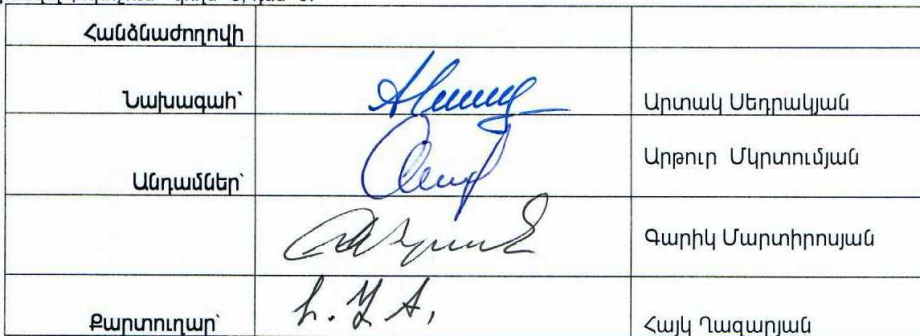 Հանձնաժողովի
Նախագահ՝ Արտակ Սեդրակյան
Անդամներ՝ Արթուր Մկրտումյան
Գարիկ Մարտիրոսյան
Քարտուղար՝ Հայկ Ղազարյան